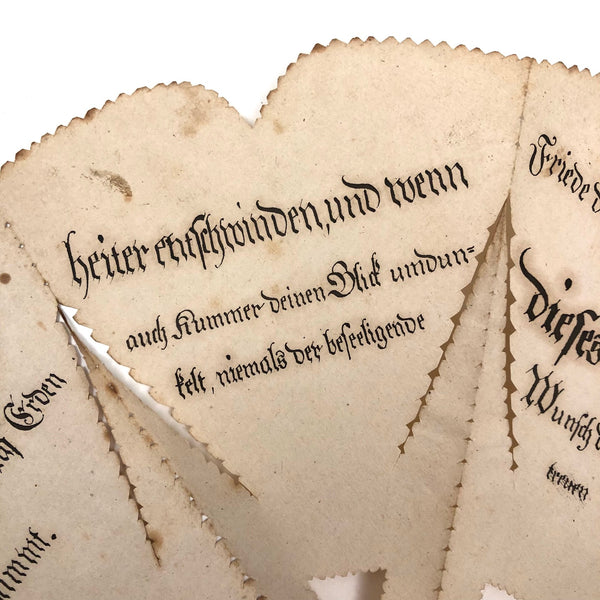 heiter entschwinden, und wenn
auch Kummer deinen Blick umdun=
kelt, niemals der beseeligende
Erden
Friede
dieses
Wunsch
treuen